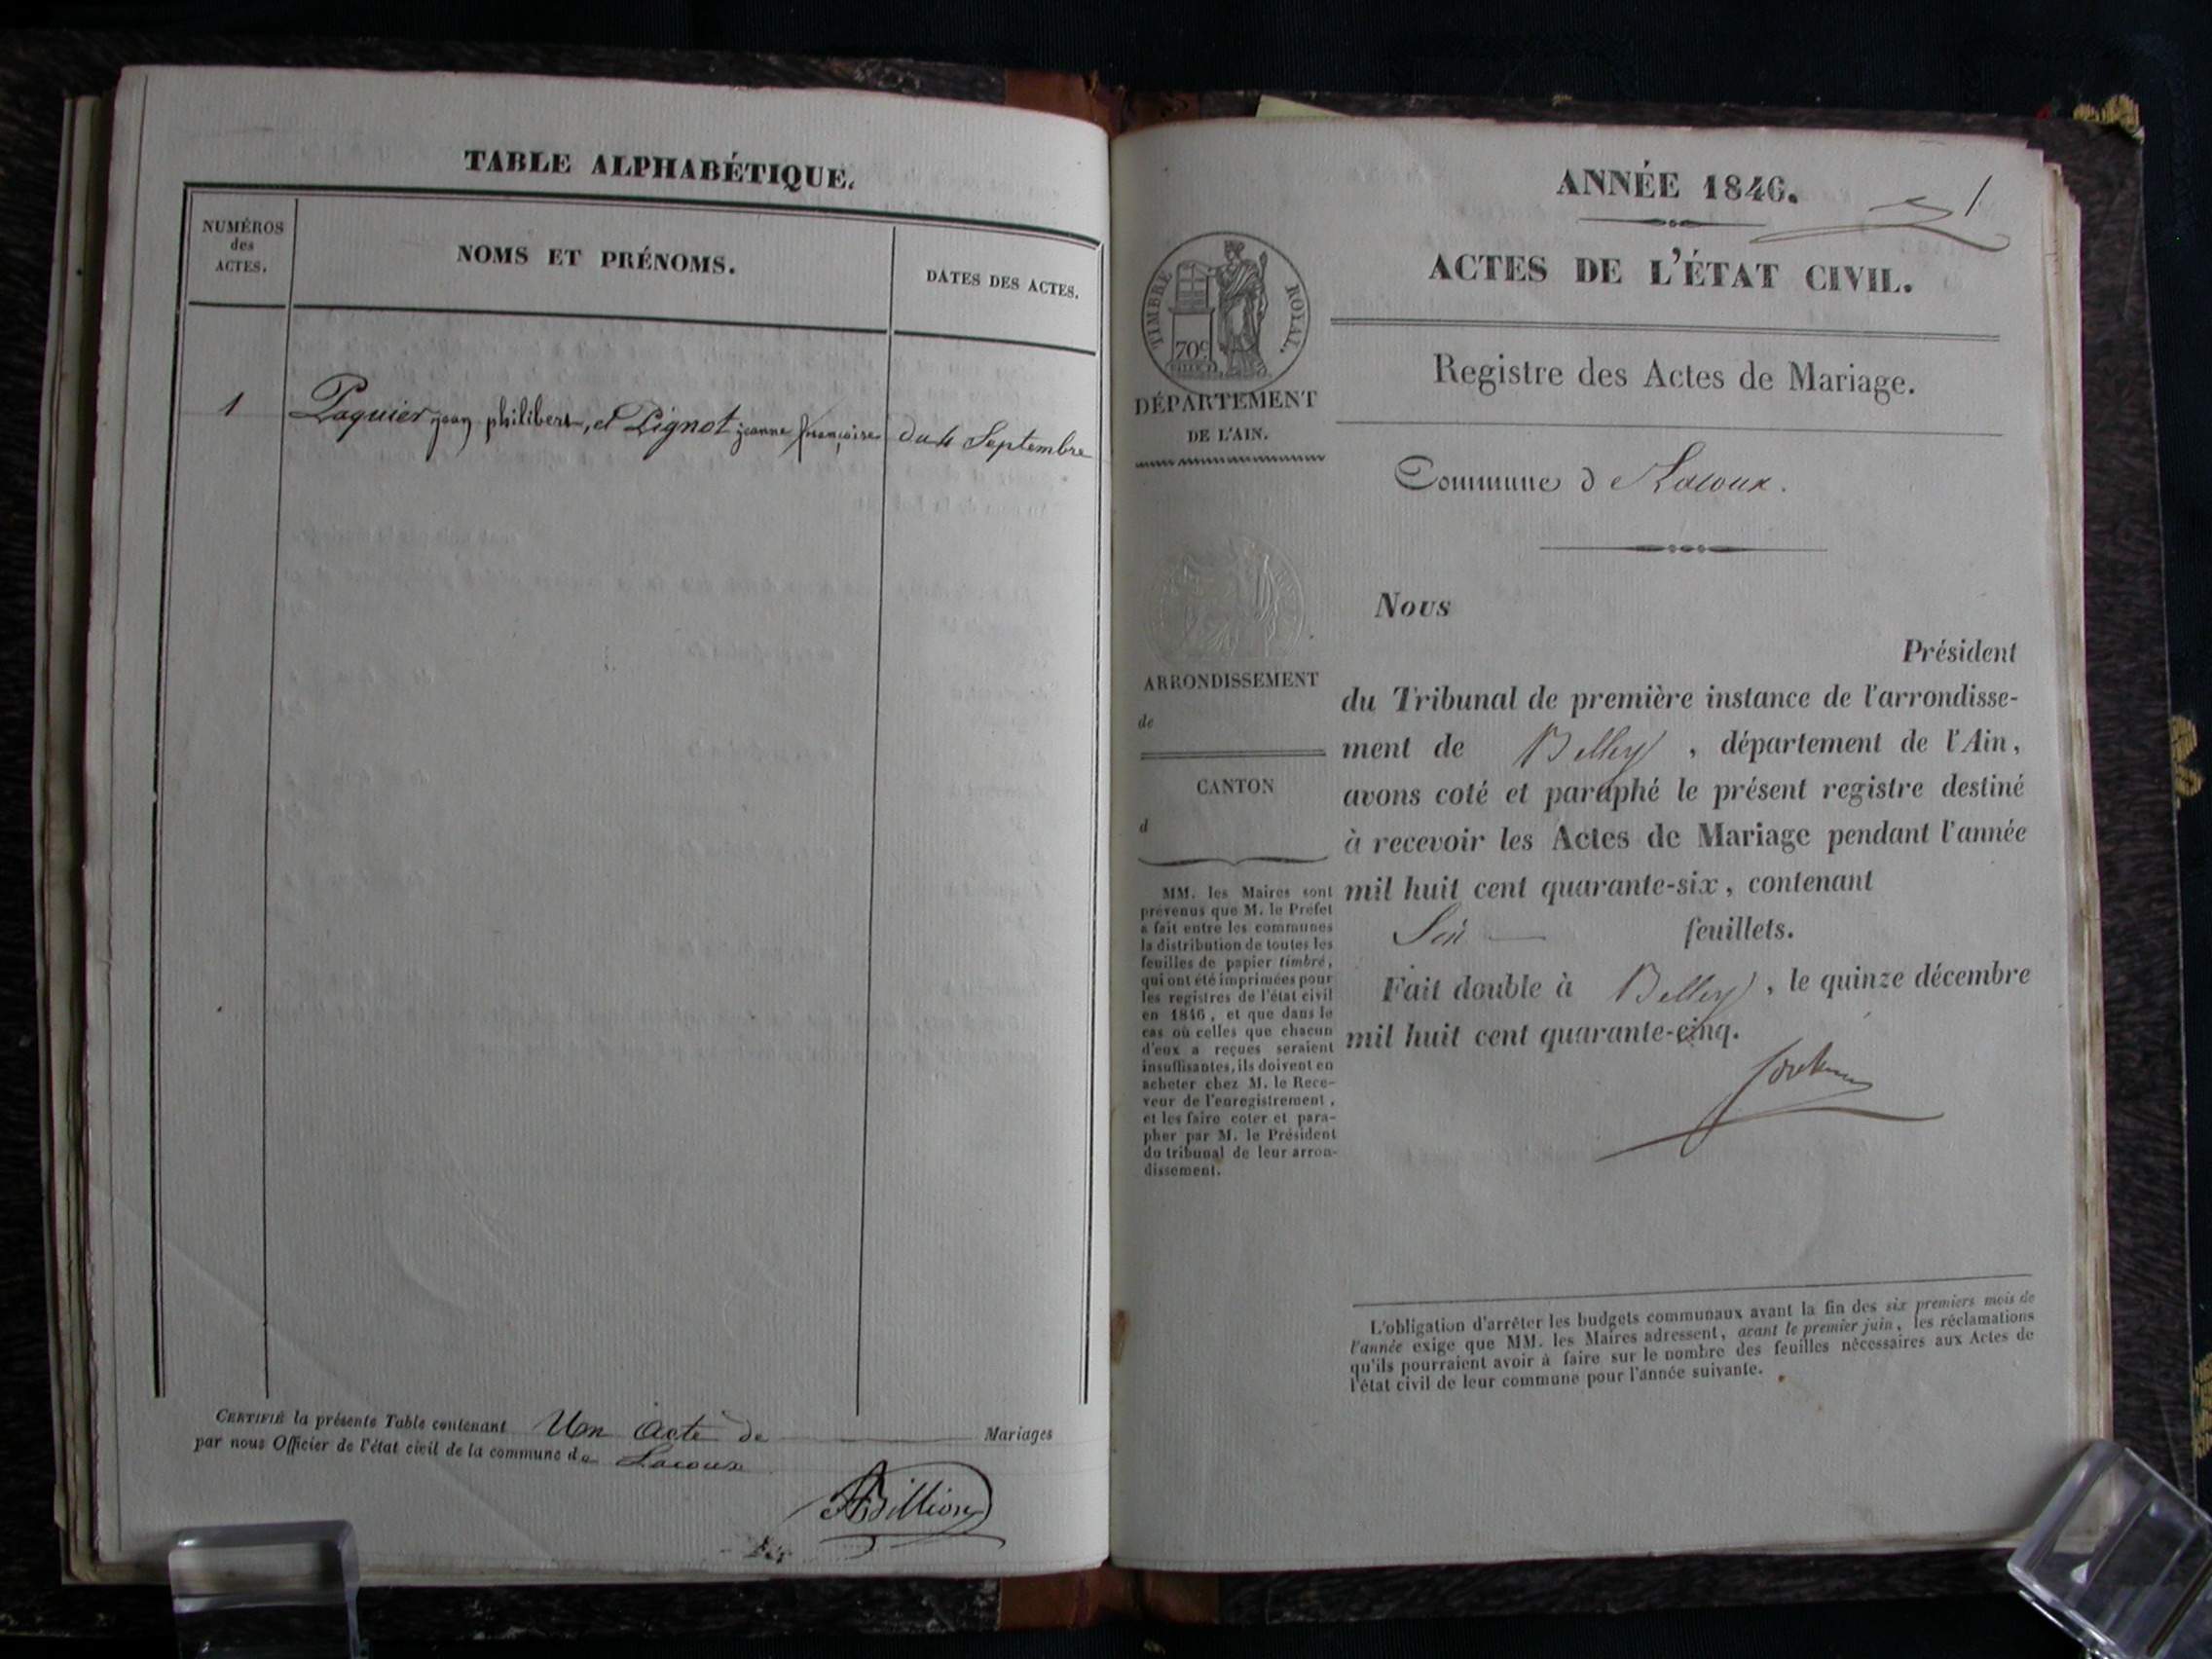 TABLE ALPHABÉTIQUE.
NUMÉROS
des
ACTES.
NOMS ET PRÉNOMS.
DATES DES ACTES.
1 Paquier jean philibert, et Pignot jeanne françoise du 4 Septembre
CERTIFIÉ la présente Table contenant Un acte de Mariages
par nous Officier de l'état civil de la commune de Lacoux
ABillion
ANNÉE 1846.
1
ACTES DE L'ÉTAT CIVIL.
TIMBRE ROYAL.
70c
DÉPARTEMENT
DE L'AIN.
Registre des Actes de Mariage.
Commune de Lacoux.
ARRONDISSEMENT
de
CANTON
d
MM. les Maires sont
prévenus que M. le Préfet
a fait entre les communes
la distribution de toutes les
feuilles de papier timbré,
qui ont été imprimées pour
les registres de l'état civil
en 1846, et que dans le
cas où celles que chacun
d'eux a reçues seraient
insuffisantes, ils doivent en
acheter chez M. le Rece-
veur de l'enregistrement,
et les faire coter et para-
pher par M. le Président
du tribunal de leur arron-
dissement.
Nous
Président
du Tribunal de première instance de l'arrondisse-
ment de Belley, département de l'Ain,
avons coté et paraphé le présent registre destiné
à recevoir les Actes de Mariage pendant l'année
mil huit cent quarante-six, contenant
Six feuillets.
Fait double à Belley, le quinze décembre
mil huit cent quarante-cinq.
L'obligation d'arrêter les budgets communaux avant la fin des six premiers mois de
l'année exige que MM. les Maires adressent, avant le premier juin, les réclamations
qu'ils pourraient avoir à faire sur le nombre des feuilles nécessaires aux Actes de
l'état civil de leur commune pour l'année suivante.